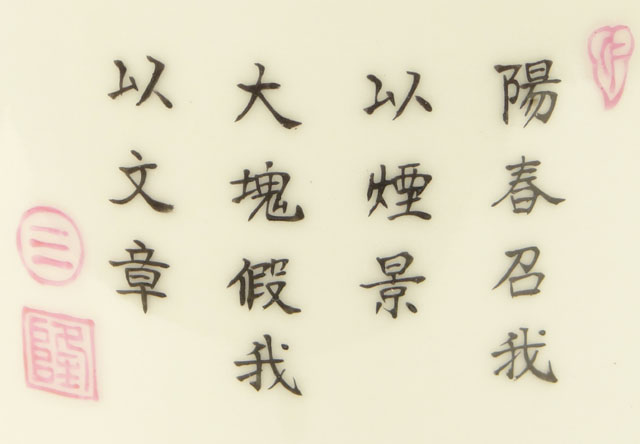 陽春召我
以煙景
大塊假我
以文章
三
隆